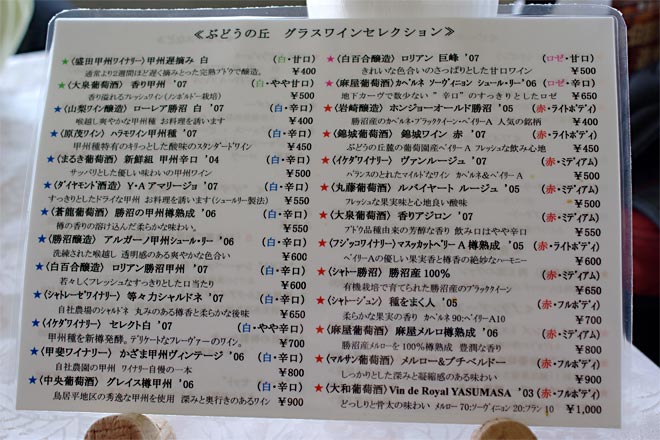 ≪ぶどうの丘　グラスワインセレクション≫
★〈盛田甲州ワイナリー〉甲州遅摘み 白 (白・甘口)
通常より2週間ほど遅く摘みとった完熟ブドウで醸造。 ¥400
★〈大泉葡萄酒〉香り甲州 '07 (白・やや甘口)
香り溢れるフレッシュワイン(ボルドー栽培) ¥400
★〈山梨ワイン醸造〉ローレア勝沼 白 (白・辛口)
喉越し爽やかな甲州種 お料理を誘います ¥400
★〈原茂ワイン〉ハラモワイン甲州種 '07 (白・辛口)
甲州種特有のキリっとした酸味のスタンダードワイン ¥450
★〈まるき葡萄酒〉新鮮組 甲州辛口 '04 (白・辛口)
サッパリとした優しい味わいの甲州ワイン ¥500
★〈ダイヤモンド酒造〉Y・A アマリージョ '07 (白・辛口)
すっきりとしたドライな甲州 お料理を誘います(シュールリー製法) ¥550
★〈蒼龍葡萄酒〉勝沼の甲州樽熟成 '06 (白・辛口)
樽の香りの溶け込んだ柔らかな味わい。 ¥550
★〈勝沼醸造〉アルガーノ甲州シュール・リー '06 (白・辛口)
洗練された喉越し 透明感のある爽やかな色合い ¥600
★〈白百合醸造〉ロリアン勝沼甲州 '07 (白・辛口)
若々しくフレッシュなすっきりとした口当たり ¥600
★〈シャトレーゼワイナリー〉等々力シャルドネ '07 (白・辛口)
自社農場のシャルドネ 丸みのある樽香と柔らかな後味 ¥650
★〈イケダワイナリー〉セレクト白 '07 (白・やや辛口)
甲州種を新樽発酵。デリケートなフレーヴァーのワイン。 ¥700
★〈甲斐ワイナリー〉かざま甲州ヴィンテージ '06 (白・辛口)
自社農園の甲州 ワイナリー自慢の一本 ¥800
★〈中央葡萄酒〉グレイス樽甲州 '06 (白・辛口)
鳥居平地区の秀逸な甲州を使用 深みと奥行きのあるワイン ¥900
★〈白百合醸造〉ロリアン 巨峰 '07 (ロゼ・甘口)
きれいな色合いのさっぱりとした甘口ワイン ¥500
★〈麻屋葡萄酒〉カベルネ ソーヴィニョン シュール・リー '06 (ロゼ・辛口)
地下カーヴで数少ない“辛口”のすっきりとしたロゼ ¥650
★〈岩崎醸造〉ホンジョーオールド勝沼 '05 (赤・ライトボディ)
勝沼産のカベルネ・ブラッククイーン・ベイリーA 人気の銘柄 ¥400
★〈錦城葡萄酒〉錦城ワイン 赤 '07 (赤・ライトボディ)
ぶどうの丘麓の葡萄園産ベイリーA フレッシュな飲み心地 ¥450
★〈イケダワイナリー〉ヴァンルージュ '07 (赤・ミディアム)
バランスのとれたマイルドなワイン カベルネ&ベイリーA ¥500
★〈丸藤葡萄酒〉ルバイヤート ルージュ '05 (赤・ミディアム)
フレッシュな果実味と心地良い酸味 ¥500
★〈大泉葡萄酒〉香りアジロン '07 (赤・ミディアム)
ブドウ品種由来の芳醇な香り 飲み口はやや辛口 ¥500
★〈フジッコワイナリー〉マスカットベリーA 樽熟成 '05 (赤・ライトボディ)
ベイリーAの優しい果実香と樽香の絶妙なハーモニー ¥600
★〈シャトー勝沼〉勝沼産 100% (赤・ミディアム)
有機栽培で育てられた勝沼産のブラッククイーン ¥650
★〈シャトージュン〉種をまく人 '05 (赤・フルボディ)
柔らかな果実の香り カベルネ90:ベイリーA10 ¥700
★〈麻屋葡萄酒〉麻屋メルロ樽熟成 '06 (赤・ミディアム)
勝沼産メルロを100%樽熟成 豊潤な香り ¥800
★〈マルサン葡萄酒〉メルロー&プチベルドー (赤・フルボディ)
しっかりとした深みと凝縮感のある味わい ¥900
★〈大和葡萄酒〉Vin de Royal YASUMASA '03 (赤・フルボディ)
どっしりと骨太の味わい メルロー 70:ソーヴィニョン 20:フラン 10 ¥1,000